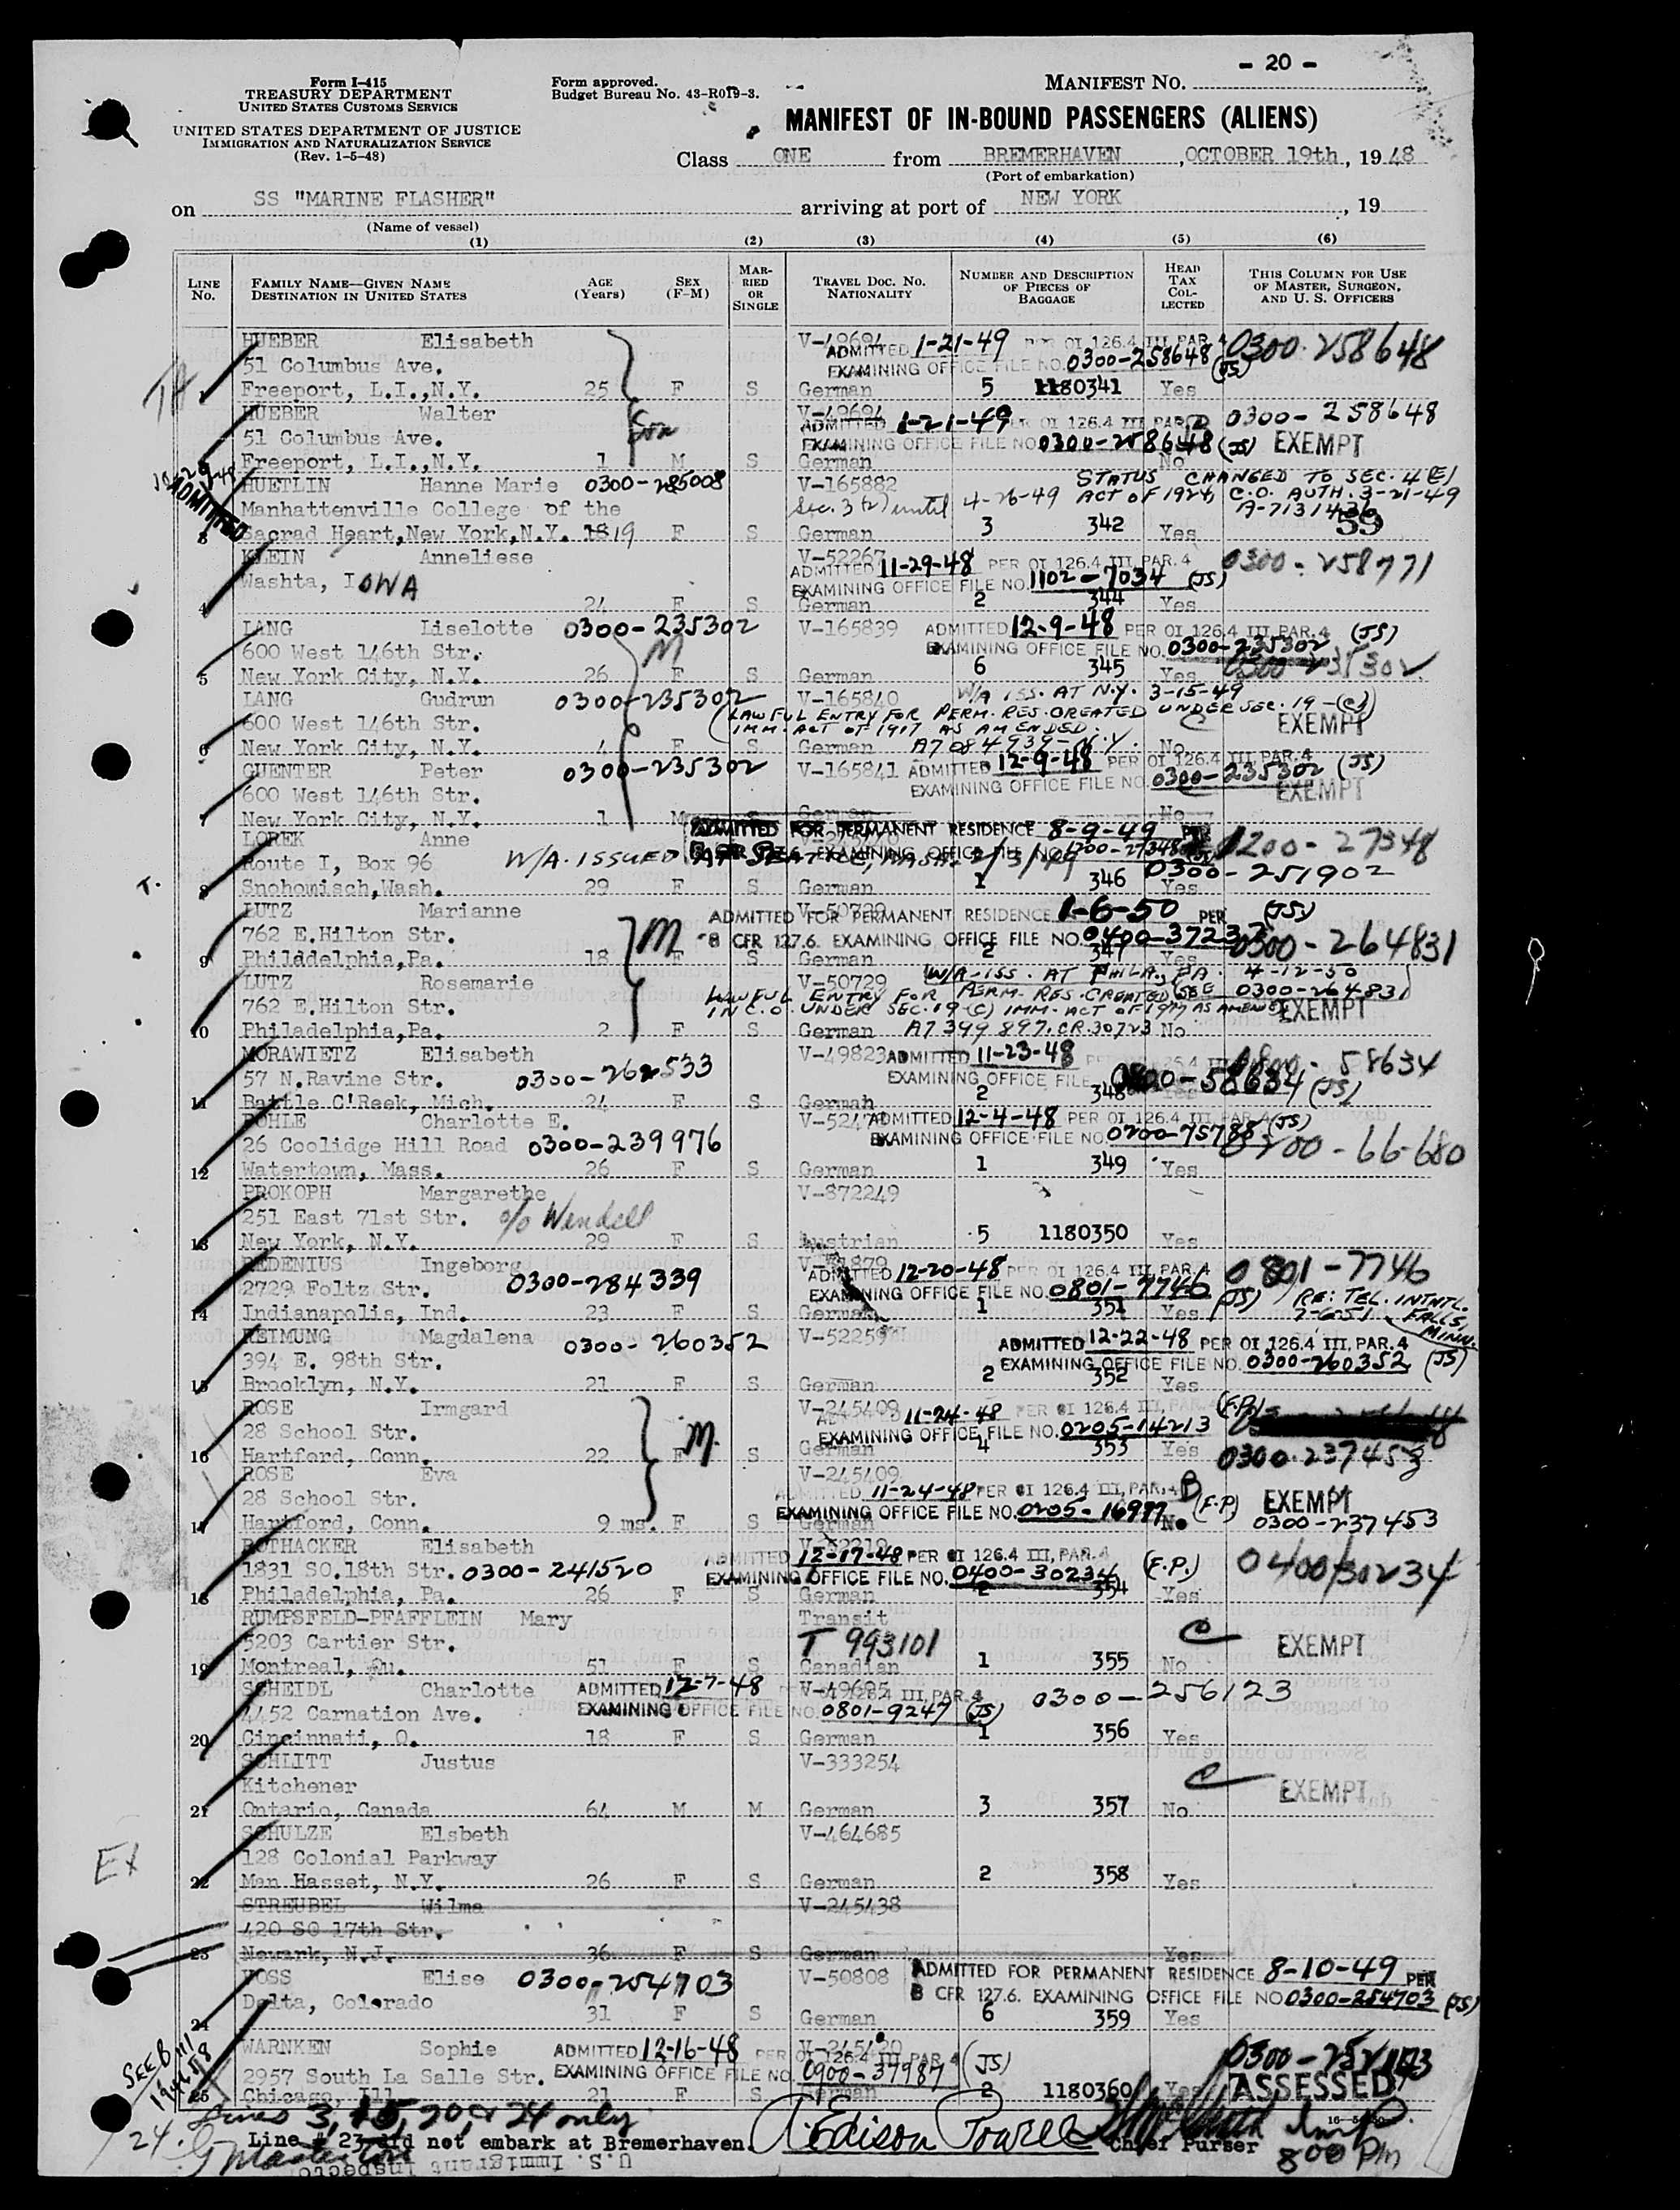 - 20 -
Form I-415
TREASURY DEPARTMENT
UNITED STATES CUSTOMS SERVICE
UNITED STATES DEPARTMENT OF JUSTICE
IMMIGRATION AND NATURALIZATION SERVICE
(Rev. 1-5-48)
Form approved.
Budget Bureau No. 43-R019-3.
MANIFEST NO.
MANIFEST OF IN-BOUND PASSENGERS (ALIENS)
Class ONE from BREMERHAVEN, OCTOBER 19th, 1948
(Port of embarkation)
on SS "MARINE FLASHER" arriving at port of NEW YORK, 19
(Name of vessel)
(1) (2) (3) (4) (5) (6)
LINE No. FAMILY NAME—GIVEN NAME DESTINATION IN UNITED STATES AGE (Years) SEX (F-M) MARRIED OR SINGLE TRAVEL DOC. NO. NATIONALITY NUMBER AND DESCRIPTION OF PIECES OF BAGGAGE HEAD TAX COLLECTED THIS COLUMN FOR USE OF MASTER, SURGEON, AND U. S. OFFICERS
HUEBER Elisabeth V-49694 ADMITTED 1-21-49 PER OI 126.4 III PAR. 4 0300-258648
51 Columbus Ave. EXAMINING OFFICE FILE NO. 0300-258648 (JS)
1 Freeport, L.I.,N.Y. 25 F S German 5 1180341 Yes
HUEBER Walter V-49694 ADMITTED 1-21-49 PER OI 126.4 III PAR. 0300-258648
51 Columbus Ave. EXAMINING OFFICE FILE NO. 0300-258648 (JS) EXEMPT
Freeport, L.I.,N.Y. 1 M S German No
10-29-48 ADMITTED
HUETLIN Hanne Marie 0300-285008 V-165882 STATUS CHANGED TO SEC. 4(E)
Manhattenville College of the Sec. 3(2) until 4-26-49 ACT OF 1924, C.O. AUTH. 3-21-49
A-7131436
3 Sacrad Heart,New York,N.Y. 18 19 F S German 3 342 Yes 59
KLEIN Anneliese V-52267 ADMITTED 11-29-48 PER OI 126.4 III, PAR. 4 0300-258771
Washta, IOWA EXAMINING OFFICE FILE NO. 1102-7034 (JS)
4 24 F S German 2 344 Yes
LANG Liselotte 0300-235302 V-165839 ADMITTED 12-9-48 PER OI 126.4 III PAR. 4 (JS)
600 West 146th Str. M EXAMINING OFFICE FILE NO. 0300-235302
5 New York City, N.Y. 26 F S German 6 345 Yes 0300-235302
LANG Gudrun 0300-235302 V-165840 W/A ISS. AT N.Y. 3-15-49
600 West 146th Str. (LAWFUL ENTRY FOR PERM. RES. CREATED UNDER SEC. 19-(c) EXEMPT
IMM. ACT OF 1917 AS AMENDED.
6 New York City, N.Y. 4 F S German A7084939-N.Y. No
GUENTER Peter 0300-235302 V-165841 ADMITTED 12-9-48 PER OI 126.4 III, PAR. 4
600 West 146th Str. EXAMINING OFFICE FILE NO. 0300-235302 (JS) EXEMPT
7 New York City, N.Y. 1 M S German No
LOREK Anne ADMITTED FOR PERMANENT RESIDENCE 8-9-49 PER 1200-27348
Route I, Box 96 W/A ISSUED AT SEATTLE, WASH. 2/3/49 EXAMINING OFFICE FILE NO. 1200-27348
8 Snohomisch,Wash. 29 F S German 1 346 Yes 0300-251902
T.
LUTZ Marianne V-50729 ADMITTED FOR PERMANENT RESIDENCE 1-6-50 PER (JS)
762 E.Hilton Str. M 8 CFR 127.6. EXAMINING OFFICE FILE NO. 0400-37237 0300-264831
9 Philaddelphia,Pa. 18 F S German 2 347 Yes
LUTZ Rosemarie V-50729 W/A-ISS. AT PHILA, PA. 4-12-50
762 E.Hilton Str. LAWFUL ENTRY FOR PERM. RES. CREATED (SEE 0300-264831)
IN C.O. UNDER SEC. 19(C) IMM. ACT OF 1917 AS AMENDED EXEMPT
10 Philadelphia,Pa. 2 F S German A7399897. CR.30723 No
MORAWIETZ Elisabeth V-49823 ADMITTED 11-23-48 0800-58634
57 N.Ravine Str. 0300-262533 EXAMINING OFFICE FILE 0800-58634 (JS)
11 Battle C'Reek, Mich. 24 F S German 2 348 Yes
POHLE Charlotte E. ADMITTED 12-4-48 PER OI 126.4 III PAR 4 (JS)
26 Coolidge Hill Road 0300-239976 EXAMINING OFFICE FILE NO. 0200-75788 0200-66680
12 Watertown, Mass. 26 F S German 1 349 Yes
PROKOPH Margarethe V-872249
251 East 71st Str. c/o Wendell
13 New York, N.Y. 29 F S Austrian 5 1180350 Yes
REDENIUS Ingeborg ADMITTED 12-20-48 PER OI 126.4 III, PAR. 4 0801-7746
2729 Foltz Str. 0300-284339 EXAMINING OFFICE FILE NO. 0801-7746 (JS) RE: TEL. INTNTL. FALLS, MINN.
14 Indianapolis, Ind. 23 F S German 1 351 Yes 7-6-51
REIMUNG Magdalena 0300-260352 V-52259 ADMITTED 12-22-48 PER OI 126.4 III, PAR. 4
394 E. 98th Str. EXAMINING OFFICE FILE NO. 0300-260352 (JS)
15 Brooklyn, N.Y. 21 F S German 2 352 Yes
ROSE Irmgard V-245409 ADMITTED 11-24-48 PER OI 126.4 III, PAR. 4 (F.P.)
28 School Str. M. EXAMINING OFFICE FILE NO. 0205-14213
16 Hartford, Conn. 22 F S German 4 353 Yes 0300-237453
ROSE Eva V-245409
28 School Str. ADMITTED 11-24-48 PER OI 126.4 III, PAR. 4 B EXEMPT
EXAMINING OFFICE FILE NO. 0205-16977 (F.P)
17 Hartford, Conn. 9 ms. F S German No 0300-237453
ROTHACKER Elisabeth ADMITTED 12-17-48 PER OI 126.4 III, PAR. 4 (F.P.) 0400/30234
1831 SO.18th Str. 0300-241520 EXAMINING OFFICE FILE NO. 0400-30234
18 Philadelphia, Pa. 26 F S German 2 354 Yes
RUMPSFELD-PFAFFLEIN Mary Transit
5203 Cartier Str. T 993101 C EXEMPT
19 Montreal, Qu. 51 F S Canadian 1 355 No
SCHEIDL Charlotte ADMITTED 12-7-48 V-49695 III, PAR. 4 0300-256123
4452 Carnation Ave. EXAMINING OFFICE FILE NO. 0801-9247 (JS)
20 Cincinnati, O. 18 F S German 1 356 Yes
SCHLITT Justus V-333254
Kitchener C EXEMPT
21 Ontario, Canada 64 M M German 3 357 No
SCHULZE Elsbeth V-464685
128 Colonial Parkway
Ex
22 Man Hasset, N.Y. 26 F S German 2 358 Yes
STREUBEL Wilma V-245438
420 SO 17th Str.
23 Newark, N.J. 36 F S German Yes
VOSS Elise 0300-254703 V-50808 ADMITTED FOR PERMANENT RESIDENCE 8-10-49 PER
Delta, Colorado 8 CFR 127.6. EXAMINING OFFICE FILE NO 0300-254703 (JS)
24 31 F S German 6 359 Yes
WARNKEN Sophie ADMITTED 12-16-48 PER OI 126.4 III PAR 4 (JS)
2957 South La Salle Str. EXAMINING OFFICE FILE NO. 0900-37987 ASSESSED
25 Chicago, Ill. 21 F S German 2 1180360 Yes
Lines 3, 15, 20, & 24 only
Line # 23 did not embark at Bremerhaven. A. Edison Powell Chief Purser
U.S. Immigrant Inspector
800 Pm